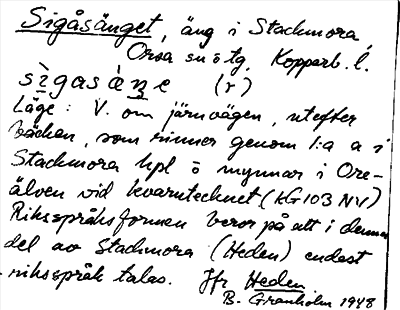 Sigåsänget, äng i Stackmora,
Orsa sn o tg, Kopparb. l.
sìgasàŋe (r)
Läge: V. om järnvägen, utefter
bäcken, som rinner genom l:a a i
Stackmora hpl o mynnar i Ore-
älven vid kvarntecknet (KG103 NV)
Riksspråksformen beror på att i denna
del av Stackmora (Heden) endast
riksspråk talas. Jfr Heden
B. Granholm 1948